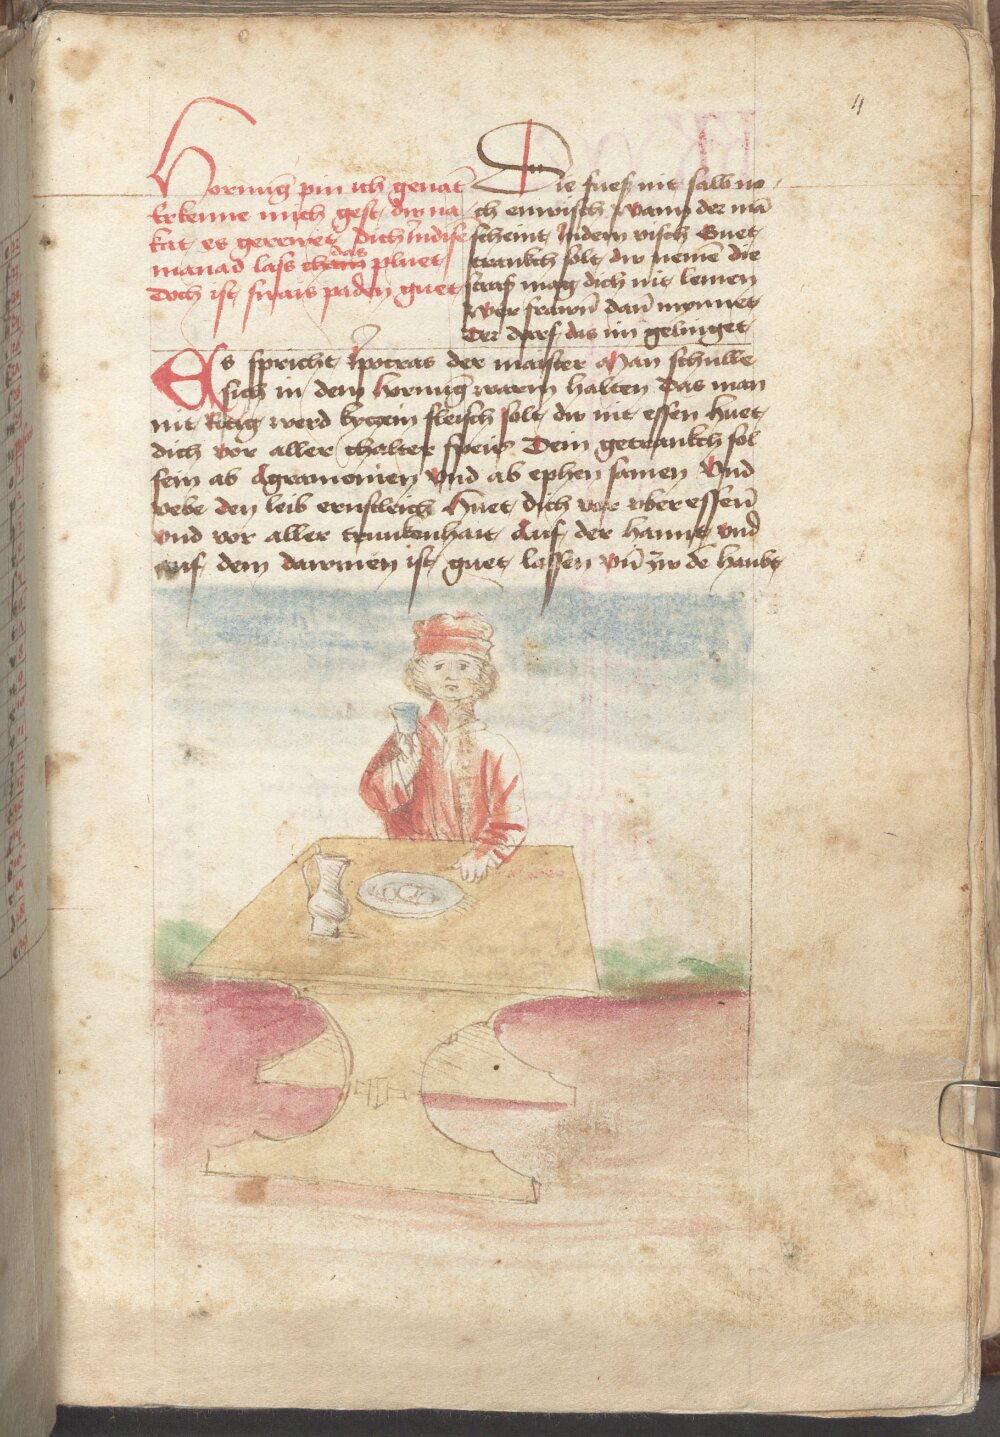 4
Hornu͂g pin ich genāt
Erkenne mich gest du na
kat es gerewet dich Jndise
manad lass das pluet
Doch ist swais paden guet
Die fues nit salb no
ch enwisch Wann der mā
scheint Jndem visch Guet
trankch solt du nemē die
straſ mag dich nit lemen
Wer frawn̄ dan̄ mynnet
Der darf das im gelinget
Es spricht ypocras der maister Man schulle
sich in dem hornūg warm halten Das man
nit Ritig werd kyczein fleisch solt du nit essen Huet
dich vor aller chalter speis Dein getrankch sol
sein ab Agramonien Vnd ab ephen samen Vnd
vebe den leib ernstleich Huet dich vor vber essen̄
Vnd vor aller trunkenhait Auf der hannt vnd
auf dem dawmen ist guet lassen vn̄ zw de haubt